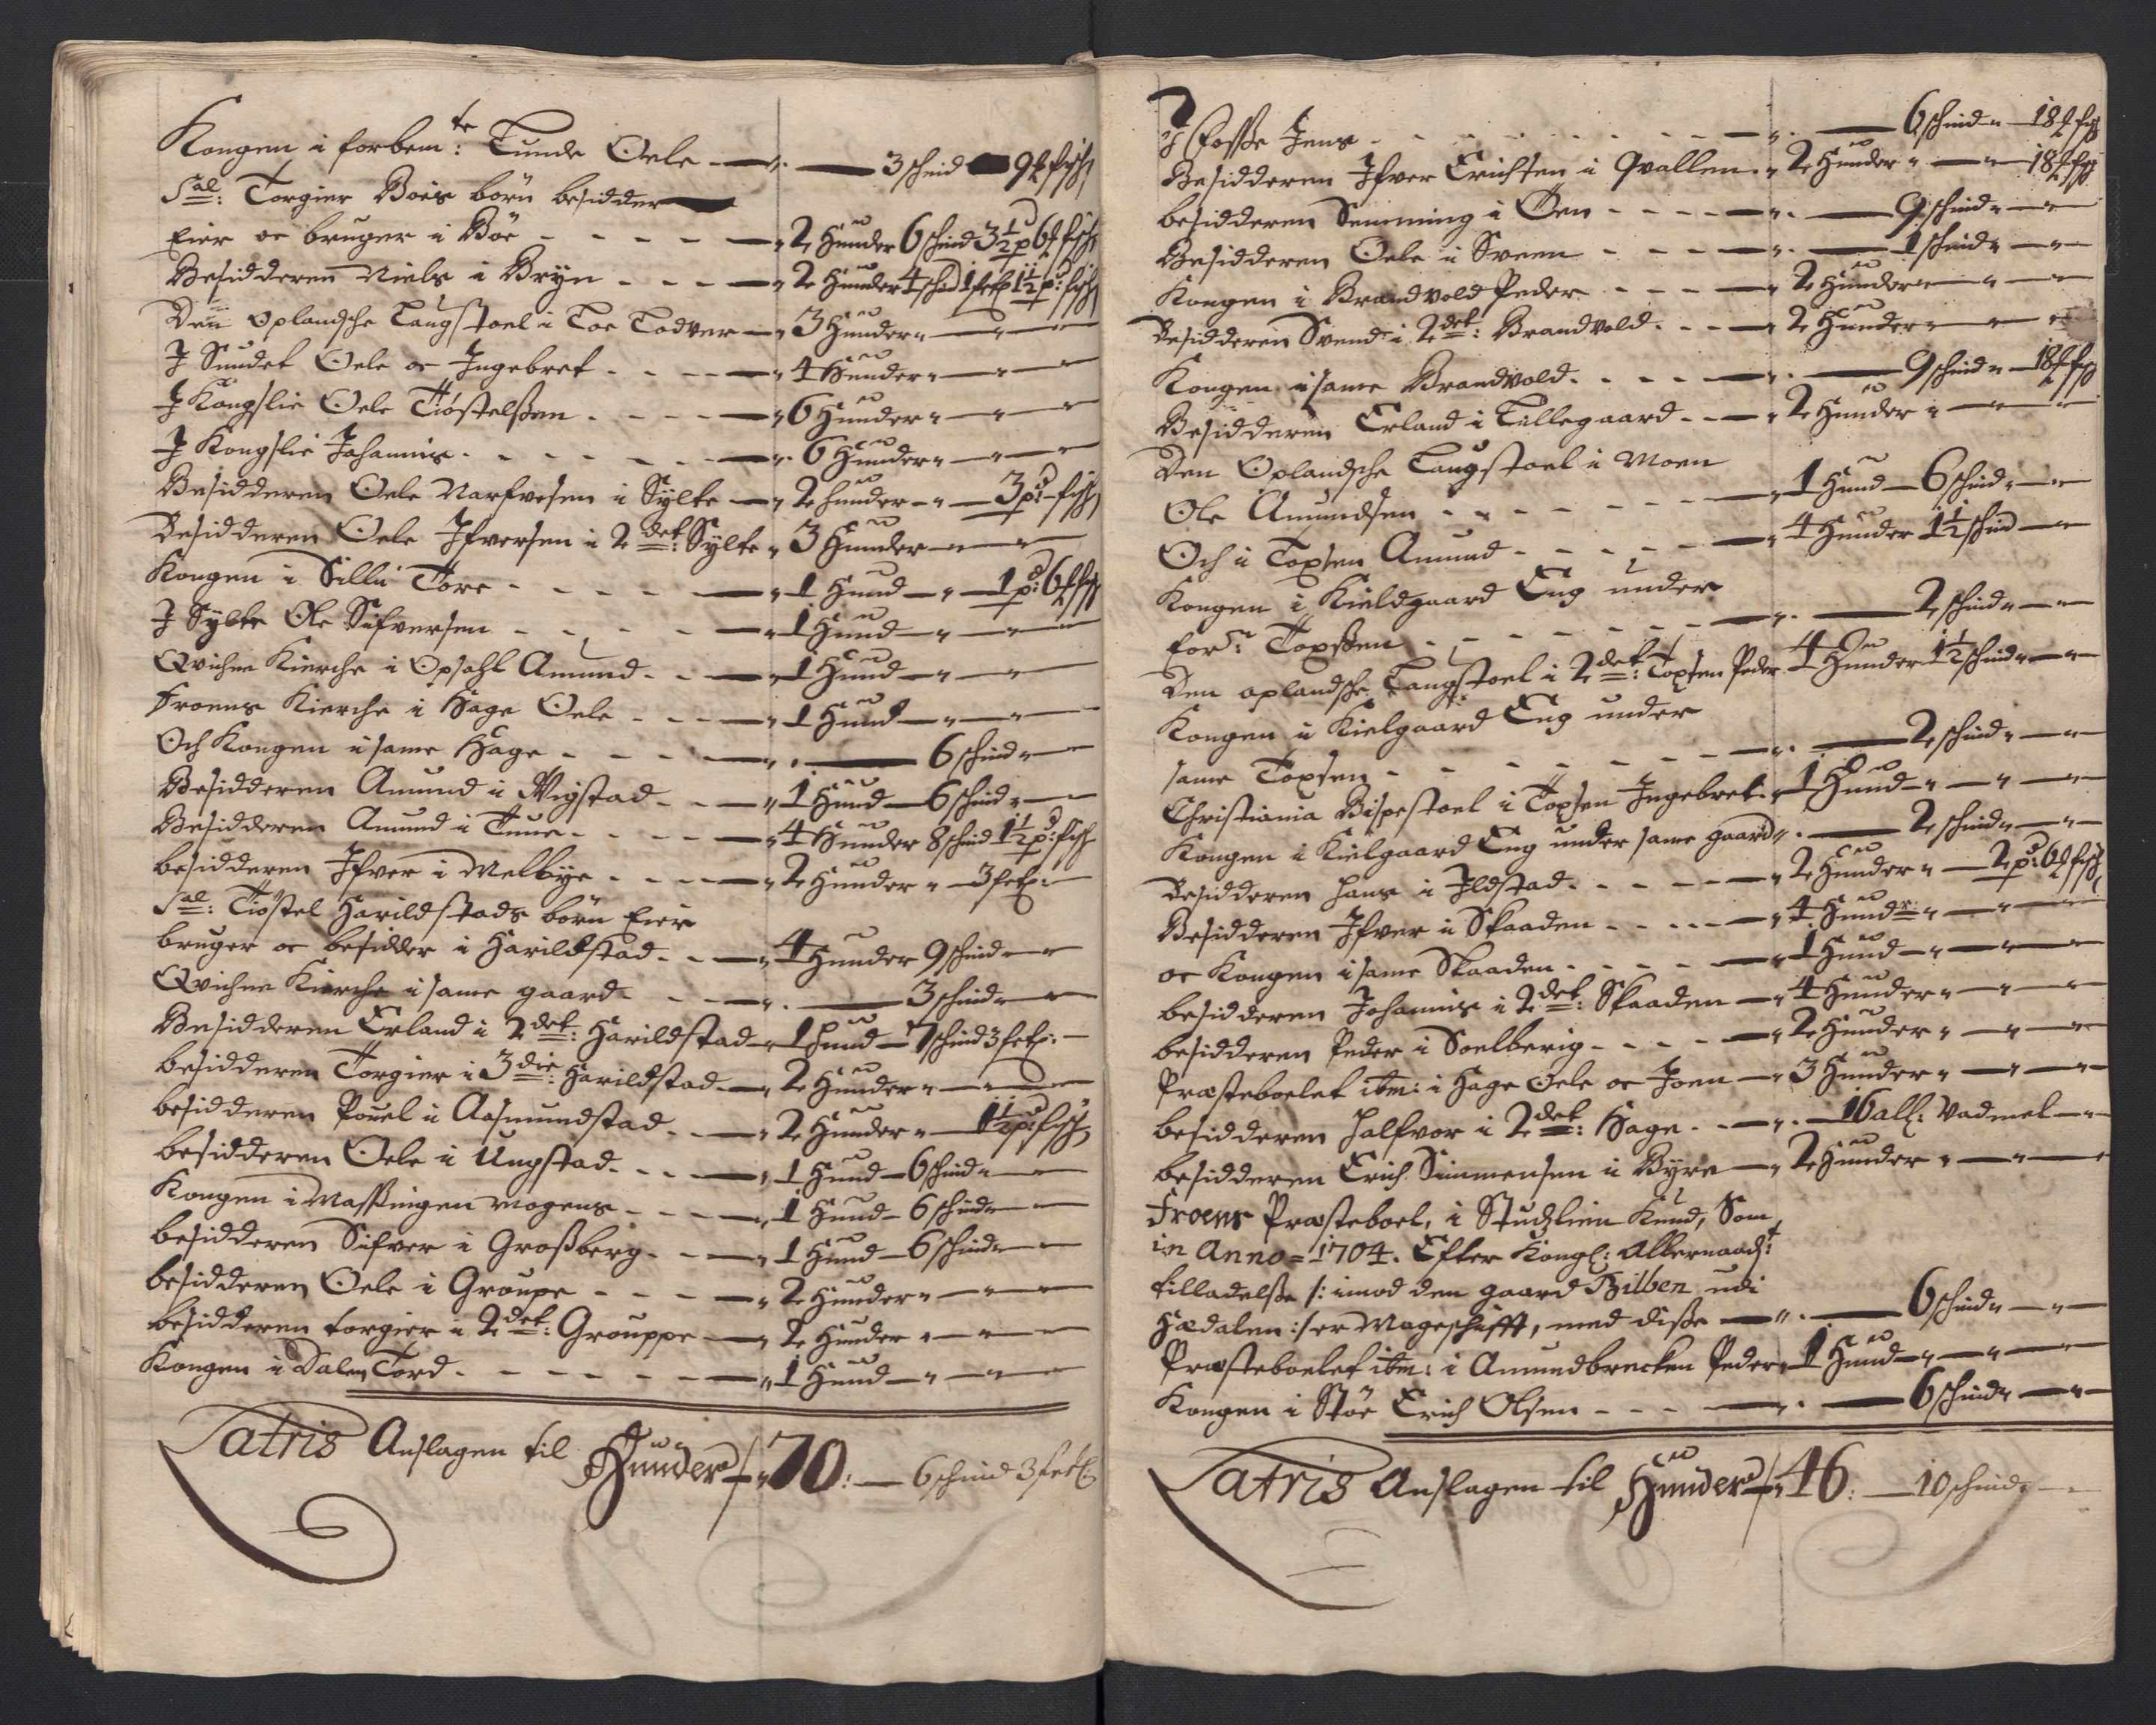 Kongen i forbem:te Tunde Oele — „ — 3 schind 9 ℔ fisch
Sal: Torgier Böes börn besidder
Eier oc bruger i Böe - - - - — „ 2 Hunder 6 schind 3½ pd 6 ℔ fisch
Besidderen Niels i Bryn - - - — „ 2 Hunder 4 schind 1 feth 1½ pd: fisch
Den Oplandsche Laugstoel i Loe Lodver — „ 3 Hunder „ — „ —
J Sundet Oele oc Ingebret - - - — „ 4 Hunder „ — „ —
J Kongslie Oele Tiöstelßen - - - — „ 6 Hunder „ — „ —
J Kongslie Johannis - - - - — „ 6 Hunder „ — „ —
Besidderen Oele Narfvesen i Sylte — „ 2 hunder - „ — 3 pd: fisch
Besidderen Oele Ifversen i 2det: Sylte „ 3 Hunder — „ —
Kongen i Sillu Tore - - - - — „ 1 Hund — „ — 1 pd: 6 ℔ fisch
J Sylte Ole Sifversen - - - - — „ 1 Hund — „ — „ —
Qvichne Kierche i Opsahl Amund - - — „ 1 Hund — „ — „ —
Froens Kierche i Hage Oele - - - — „ 1 Hund — „ — „ —
Och Kongen i same Hage - - - - — „ . — 6 schind „ —
Besidderen Amund i Wigstad - - — „ 1 Hund — 6 schind „ —
Besidderen Amund i Tune - - - - — „ 4 Hunder 8 schind 1½ pd: fisch
besidderen Ifver i Melbye - - - - — „ 2 Hunder „ — 3 feth: —
Sal: Tiöstel Harildstads börn Eier
bruger oc besidder i Harildstad - - — „ 4 Hunder 9 schind — „
Qvichne Kierche i same gaard - - - — „ . — 3 schind „ —
Besidderen Erland i 2det: Harildstad — „ 1 hund — 7 schind 3 feth: —
besidderen Torgier i 3die: Harildstad — „ 2 Hunder „ — „ —
besidderen Povel i Aasmundstad - - — „ 2 Hunder „ — 1½ pd: fisch
besidderen Oele i Ungstad - - - — „ 1 Hund — 6 schind „ —
Kongen i Massingen Mogens - - - — „ 1 Hund — 6 schind „ —
besidderen Sifver i Großberg - - — „ 1 Hund — 6 schind „ —
besidderen Oele i Groupe - - - — „ 2 Hunder „ — „ —
besidderen torgier i 2det: Grouppe — „ 2 Hunder „ — „ —
Kongen i Dalen Tord - - - - - — „ 1 Hund — „ — „ —
Latris Anslagen til Hunder — „ 70: — 6 schind 3 feth
J Fosße Jens - - - - - — „ . — 6 schind „ — 18 ℔ fisch
Besidderen Ifver Erichsen i Qvallen - „ 2 Hunder „ — „ 18 ℔ fisch
besidderen Semming i Öen - - - - — „ . — 9 schind „ — „
Besidderen Oele i Sveen - - - - — „ . — 1 schind „ — „ —
Kongen i Brandvold Peder - - - — „ 2 Hunder „ — „ —
Besidderen Svend i 2det: Brandvold - - — „ 2 Hunder „ — „
Kongen i same Brandvold - - - — „ . — 9 schind „ — 18 ℔ fisch
Besidderen Erland i Lillegaard - - — „ 2 Hunder „ — „ —
Den Oplandsche Laugstoel i Moen
Ole Amundsen - - - - - - — „ 1 Hund — 6 schind „ — „
Och i Topsen Amund - - - - - — „ 4 Hunder 1½ schind — „
Kongen i Kieldgaard Eng under
for:ne Topßen - - - - - - — „ . — 2 schind „ — „ —
Den oplandsche Laugstoel i 2det: Topsen Peder 4 Hunder 1½ schind „ — „
Kongen i Kielgaard Eng under
same Topsen - - - - - - — „ . — 2 schind „ — „ —
Christiania Bispestoel i Topsen Ingebret „ 1 Hund — „ — „ —
Kongen i Kielgaard Eng under same gaard „ . — 2 schind „ — „
Besidderen Hans i Ildstad - - - - — „ 2 Hunder „ — 2 pd: 6 ℔ fisch
Besidderen Ifver i Skaaden - - - - — „ 4 Hundr: „ — „ —
oc Kongen i same Skaaden - - - - — „ 1 Hund — „ — „ —
besidderen Johannis i 2det: Skaaden — „ 4 Hunder „ — „ —
besidderen Peder i Soelberig - - - — „ 2 Hunder „ — „ —
Præsteboelet itm: i Hage Oele oc Joen — „ 3 Hunder „ — „ —
besidderen Halfvor i 2det: Hage - - — „ . — 16 all: Vadmel — „
besidderen Erich Simmensen i Byre — „ 2 Hunder „ — „ —
Froens Præsteboel, i Studzlien Knud, Som
in Anno = 1704. Efter Kongl: Allernaadst:
tilladelße /: imod den gaard Bilben udi
Hædalen :/ er Mageschifft, med diße — „ . — 6 schind „ — „ —
Præsteboelet itm: i Amundbrecken Peder „ 1 Hund — „ — „ —
Kongen i Stöe Erich Olsen - - - — „ . — 6 schind „ — „ —
Latris Anslagen til Hunder — „ 46: — 10 schind: —